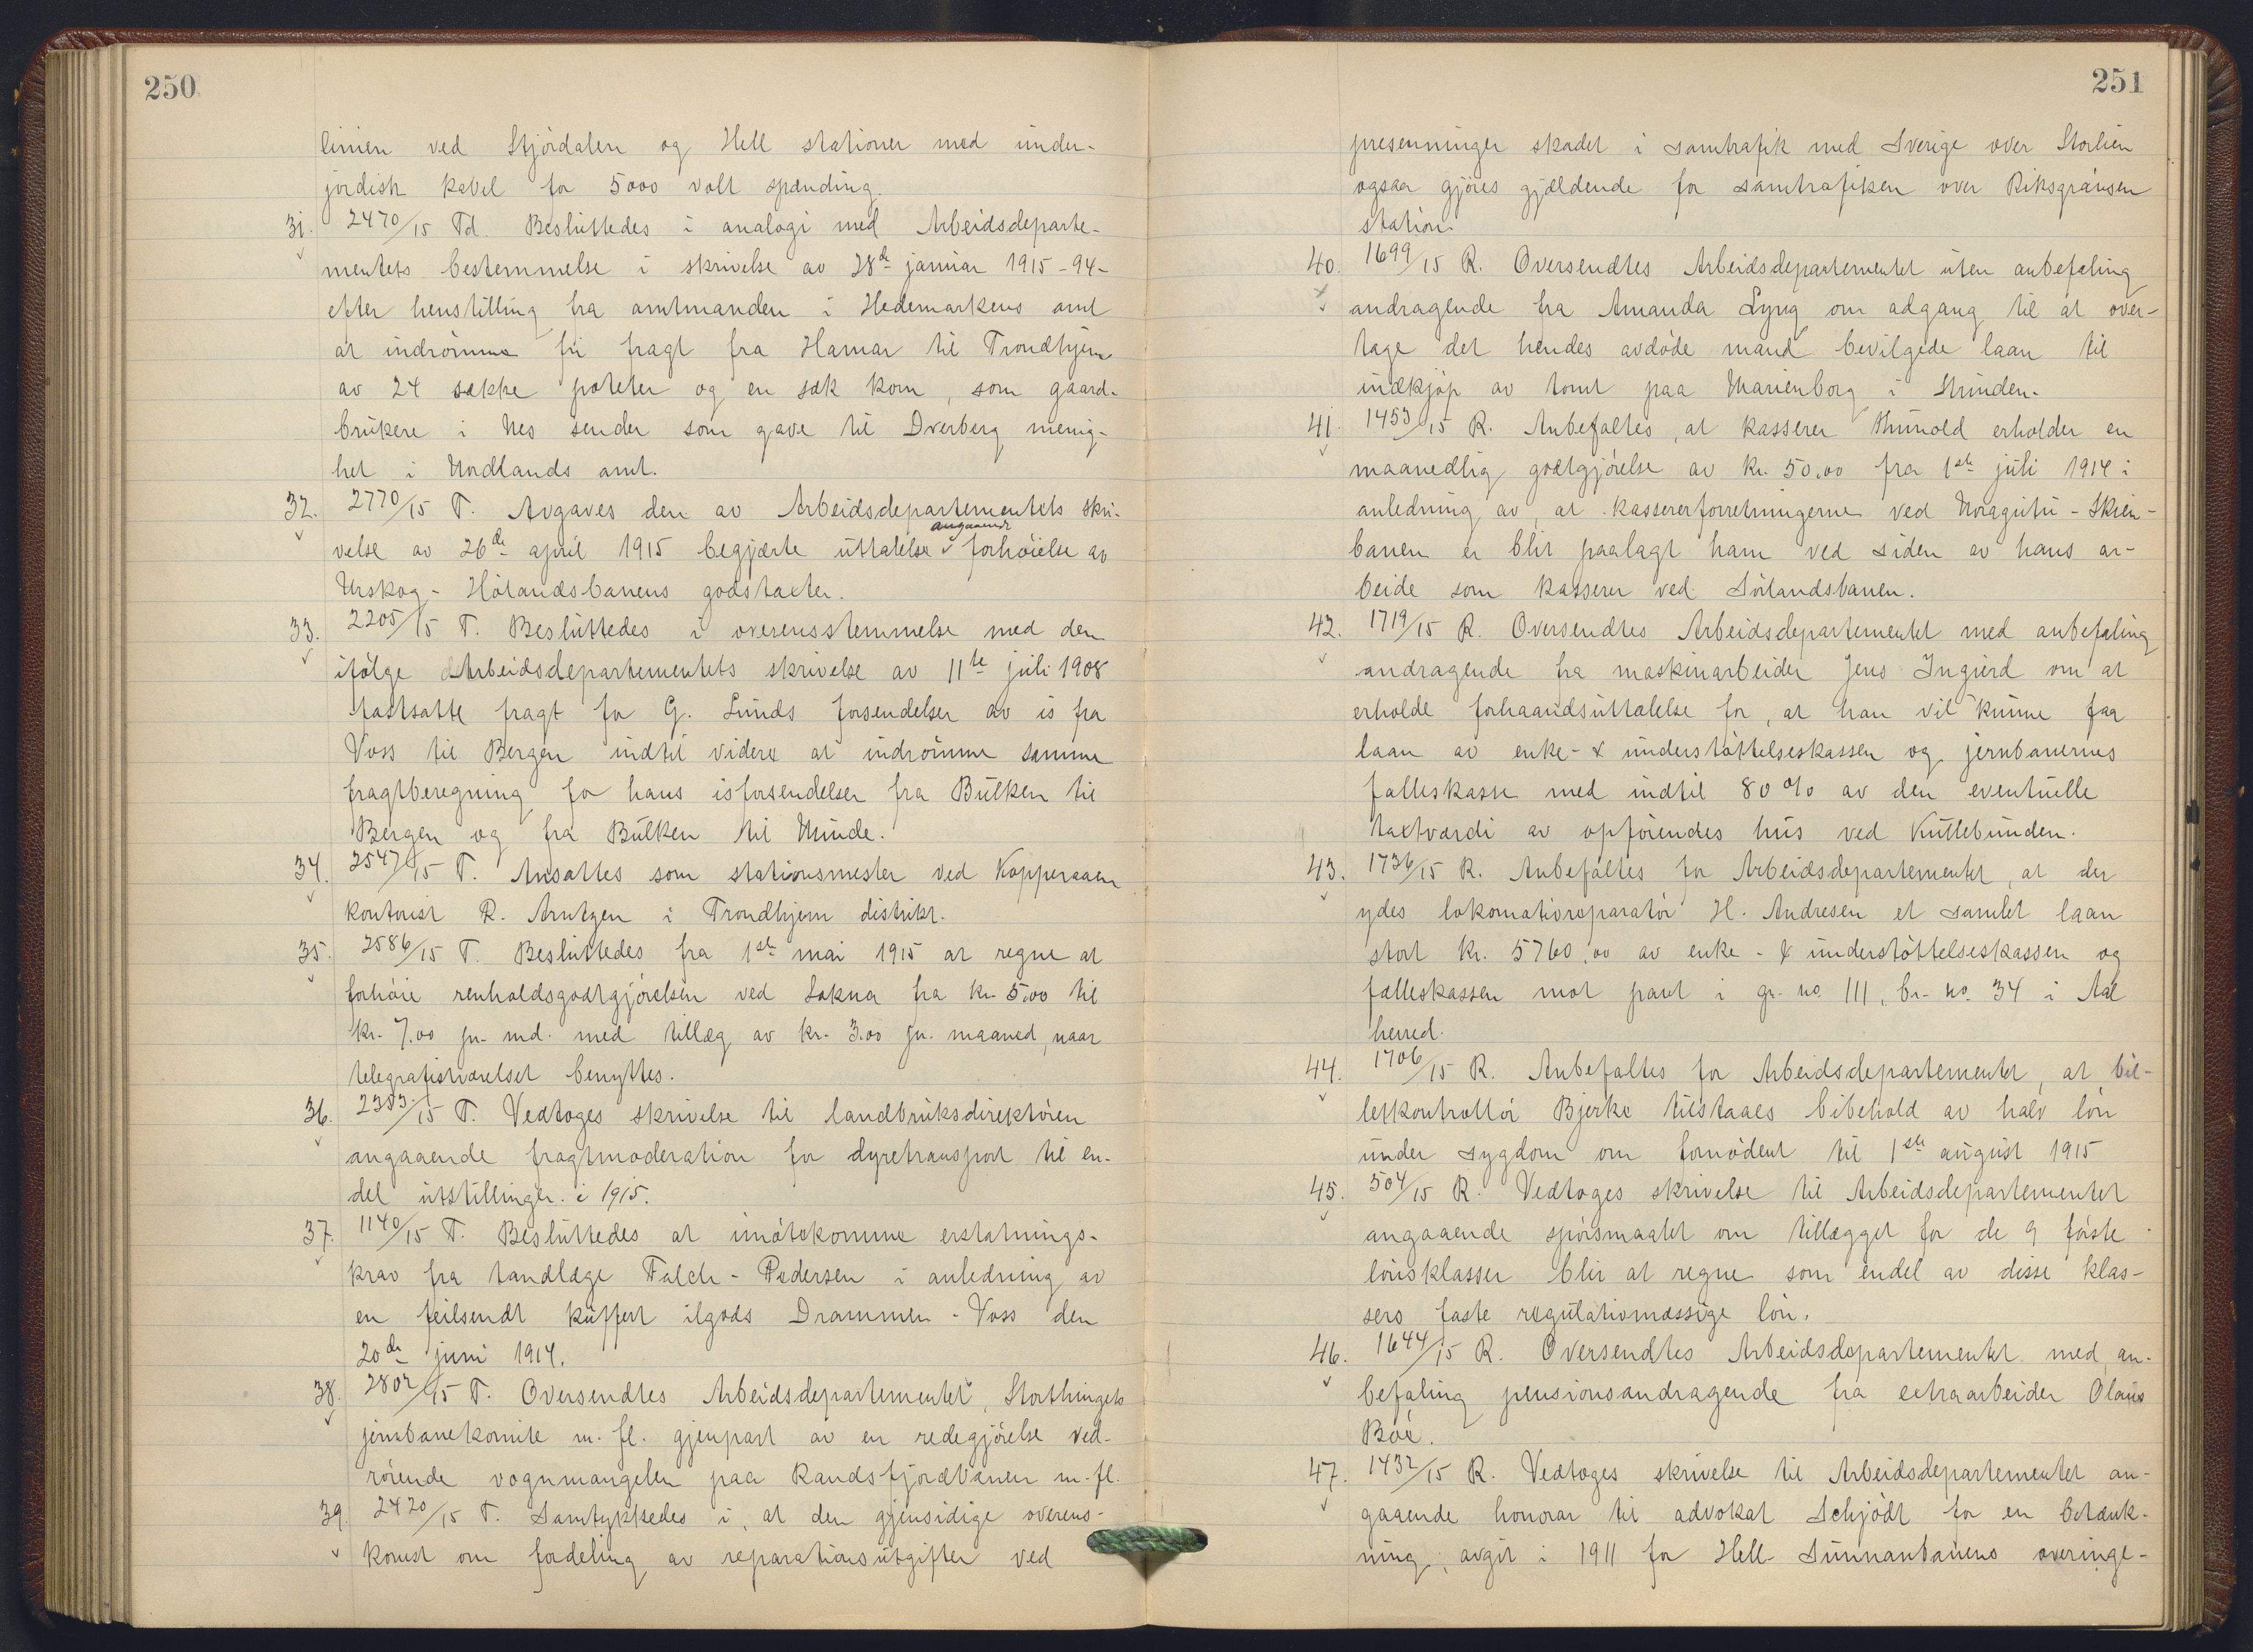 250
linien ved Stjørdalen og Hell stationer med under-
jordisk kabel for 5000 volt spænding.
31. 2470/15 Td. Besluttedes i analogi med Arbeidsdeparte-
mentets bestemmelse i skrivelse av 28de januar 1915 - 94 -
efter henstilling fra amtmanden i Hedemarkens amt
at indrømme fri fragt fra Hamar til Trondhjem
av 24 sække poteter og en sæk korn, som gaard-
brukere i Nes sender som gave til Dverberg menig-
het i Nordlands amt.
32. 2770/15 T. Avgaves den av Arbeidsdepartementets skri-
velse av 26de april 1915 begjærte uttalelse angaaende forhøielse av
Urskog-Hølandsbanens godstaxter.
33. 2205/15 T. Besluttedes i overensstemmelse med den
ifølge Arbeidsdepartementets skrivelse av 11te juli 1908
fastsatte fragt for G. Lunds forsendelser av is fra
Voss til Bergen indtil videre at indrømme samme
fragtberegning for hans isforsendelser fra Bulken til
Bergen og fra Bulken til Minde.
34. 2547/15 T. Ansattes som stationsmester ved Kopperaaen
kontorist R. Arntzen i Trondhjem distrikt.
35. 2586/15 T. Besluttedes fra 1ste mai 1915 at regne at
forhøie renholdsgodtgjørelsen ved Lokna fra kr. 5.00 til
kr. 7.00 pr. md. med tillæg av kr. 3.00 pr. maaned, naar
telegrafistværelset benyttes.
36. 2353/15 T. Vedtoges skrivelse til landbruksdirektøren
angaaende fragtmoderation for dyretransport til en-
del utstillinger i 1915.
37. 1140/15 T. Besluttedes at imøtekomme erstatnings-
krav fra tandlæge Falch-Pedersen i anledning av
en feilsendt kuffert ilgods Drammen - Voss den
20de juni 1914.
38. 2802/15 T. Oversendtes Arbeidsdepartementet, Storthingets
jernbanekomite m. fl. gjenpart av en redegjørelse ved-
rørende vognmangelen paa Randsfjordbanen m. fl.
39. 2420/15 T. Samtykkedes i, at den gjensidige overens-
komst om fordeling av reparationsutgifter ved
251
presenninger skadet i samtrafik med Sverige over Storlien
ogsaa gjøres gjældende for samtrafiken over Riksgränsen
station.
40. 1699/15 R. Oversendtes Arbeidsdepartementet uten anbefaling
andragende fra Amanda Lyng om adgang til at over-
tage det hendes avdøde mand bevilgede laan til
indkjøp av tomt paa Marienborg i Strinden.
41. 1453/15 R. Anbefaltes, at kasserer Thunold erholder en
maanedlig godtgjørelse av kr. 50.00 fra 1ste juli 1914 i
anledning av, at kassererforretningerne ved Noragutu - Skien-
banen er blit paalagt ham ved siden av hans ar-
beide som kasserer ved Sørlandsbanen.
42. 1719/15 R. Oversendtes Arbeidsdepartementet med anbefaling
andragende fra maskinarbeider Jens Ingierd om at
erholde forhaandsuttalelse for, at han vil kunne faa
laan av enke- & understøttelseskassen og jernbanernes
fælleskasse med indtil 80 % av den eventuelle
taxtværdi av opførendes hus ved Kuttebunden.
43. 1736/15 R. Anbefaltes for Arbeidsdepartementet, at der
ydes lokomotivreparatør H. Andresen et samlet laan
stort kr. 5760,00 av enke- & understøttelseskassen og
fælleskassen mot pant i gr. no 111, br. no. 34 i Aal
herred.
44. 1706/15 R. Anbefaltes for Arbeidsdepartementet, at bil-
letkontrollør Bjerke tilstaaes bibehold av halv løn
under sygdom om fornødent til 1ste august 1915
45. 504/15 R. Vedtoges skrivelse til Arbeidsdepartementet
angaaende spørsmaalet om tillægget for de 9 første
lønsklasser blir at regne som endel av disse klas-
sers faste regulativmæssige løn.
46. 1644/15 R. Oversendtes Arbeidsdepartementet med an-
befaling pensionsandragende fra extraarbeider Olaus
Boe.
47. 1432/15 R. Vedtoges skrivelse til Arbeidsdepartementet an-
gaaende honorar til advokat Schjødt for en betænk-
ning, avgit i 1911 for Hell-Sunnanbanens overinge-